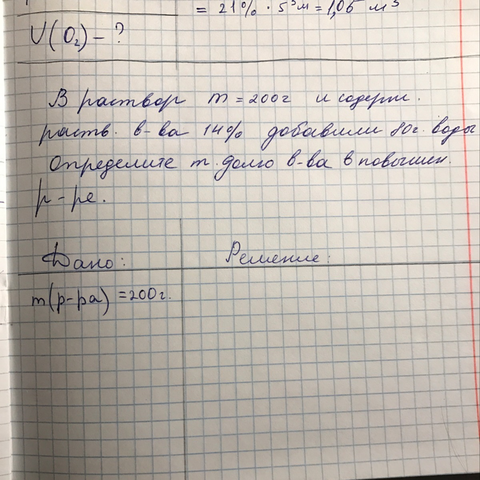 = 21% · 5 м = 1,05 м³
V(O₂) – ?
В раствор m = 200г и содерж.
раств. в-ва 14% добавили 80г. воды
Определите m. долю в-ва в повышен.
р-ре.
Дано:
Решение:
m(р-ра) = 200г.